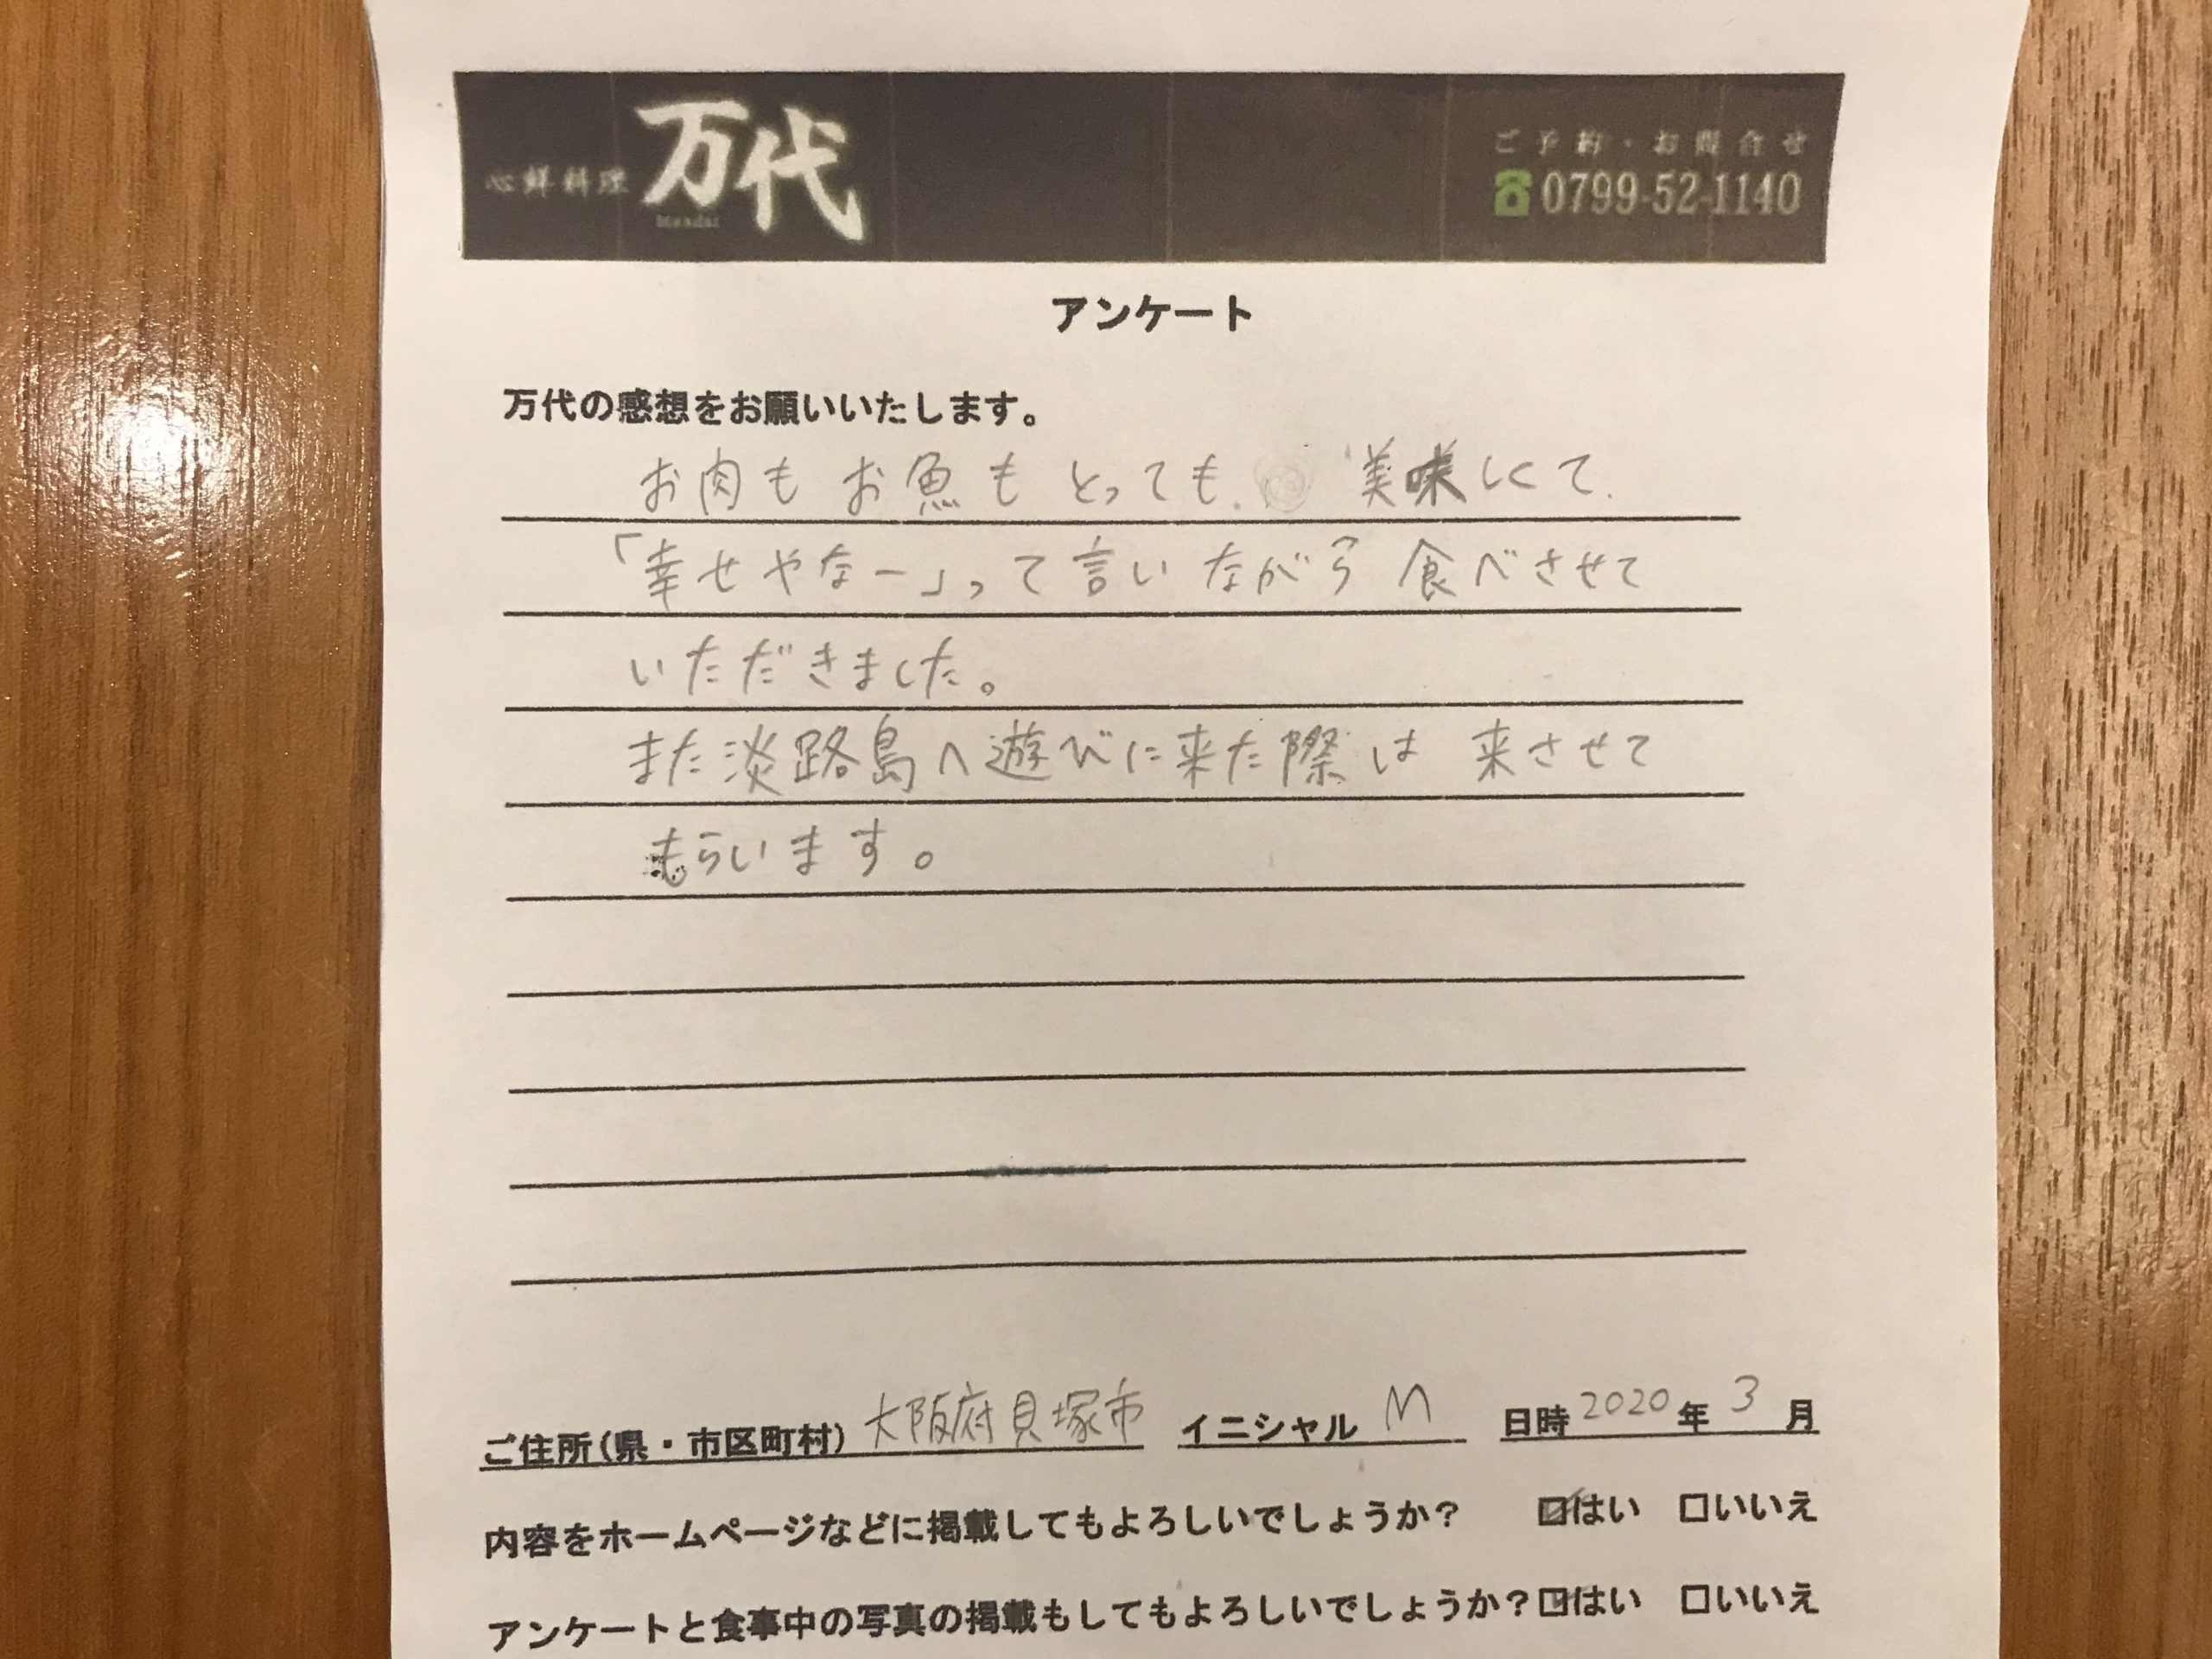 心鮮料理 万代
ご予約・お問合せ
0799-52-1140
アンケート
万代の感想をお願いいたします。
お肉も お魚も とっても 美味しくて、
「幸せやなー」って言いながら 食べさせて
いただきました。
また淡路島へ遊びに来た際は 来させて
もらいます。
ご住所(県・市区町村) 大阪府貝塚市 イニシャル M 日時 2020 年 3 月
内容をホームページなどに掲載してもよろしいでしょうか? ☑はい □いいえ
アンケートと食事中の写真の掲載もしてもよろしいでしょうか?☑はい □いいえ